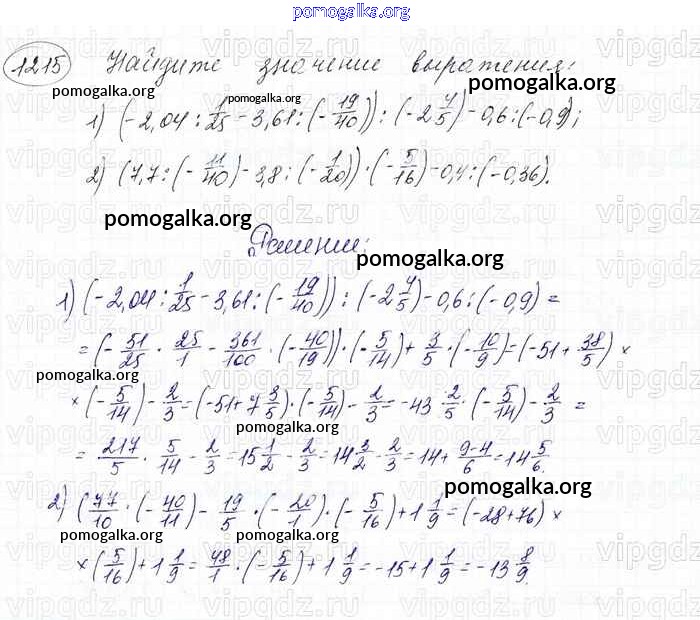 pomogalka.org
1215 Найдите значение выражения:
pomogalka.org
pomogalka.org
1) (-2,04 : 1/25 - 3,61 : (-19/40)) : (-2 4/5) - 0,6 : (-0,9);
2) (7,7 : (-11/40) - 3,8 : (-1/20)) · (-5/16) - 0,4 : (-0,36).
pomogalka.org
pomogalka.org
Решение:
pomogalka.org
1) (-2,04 : 1/25 - 3,61 : (-19/40)) : (-2 4/5) - 0,6 : (-0,9) =
= (-51/25 · 25/1 - 361/100 · (-40/19)) · (-5/14) + 3/5 · (-10/9) = (-51 + 38/5) ×
pomogalka.org
pomogalka.org
× (-5/14) - 2/3 = (-51 + 7 3/5) · (-5/14) - 2/3 = -43 2/5 · (-5/14) - 2/3 =
pomogalka.org
= 217/5 · 5/14 - 2/3 = 15 1/2 - 2/3 = 14 3/2 - 2/3 = 14 + 9-4/6 = 14 5/6.
pomogalka.org
2) (77/10 · (-40/11) - 19/5 · (-20/1) · (-5/16) + 1 1/9 = (-28 + 76) ×
pomogalka.org
× (5/16) + 1 1/9 = 48/1 · (-5/16) + 1 1/9 = -15 + 1 1/9 = -13 8/9.
pomogalka.org
vipgdz.ru